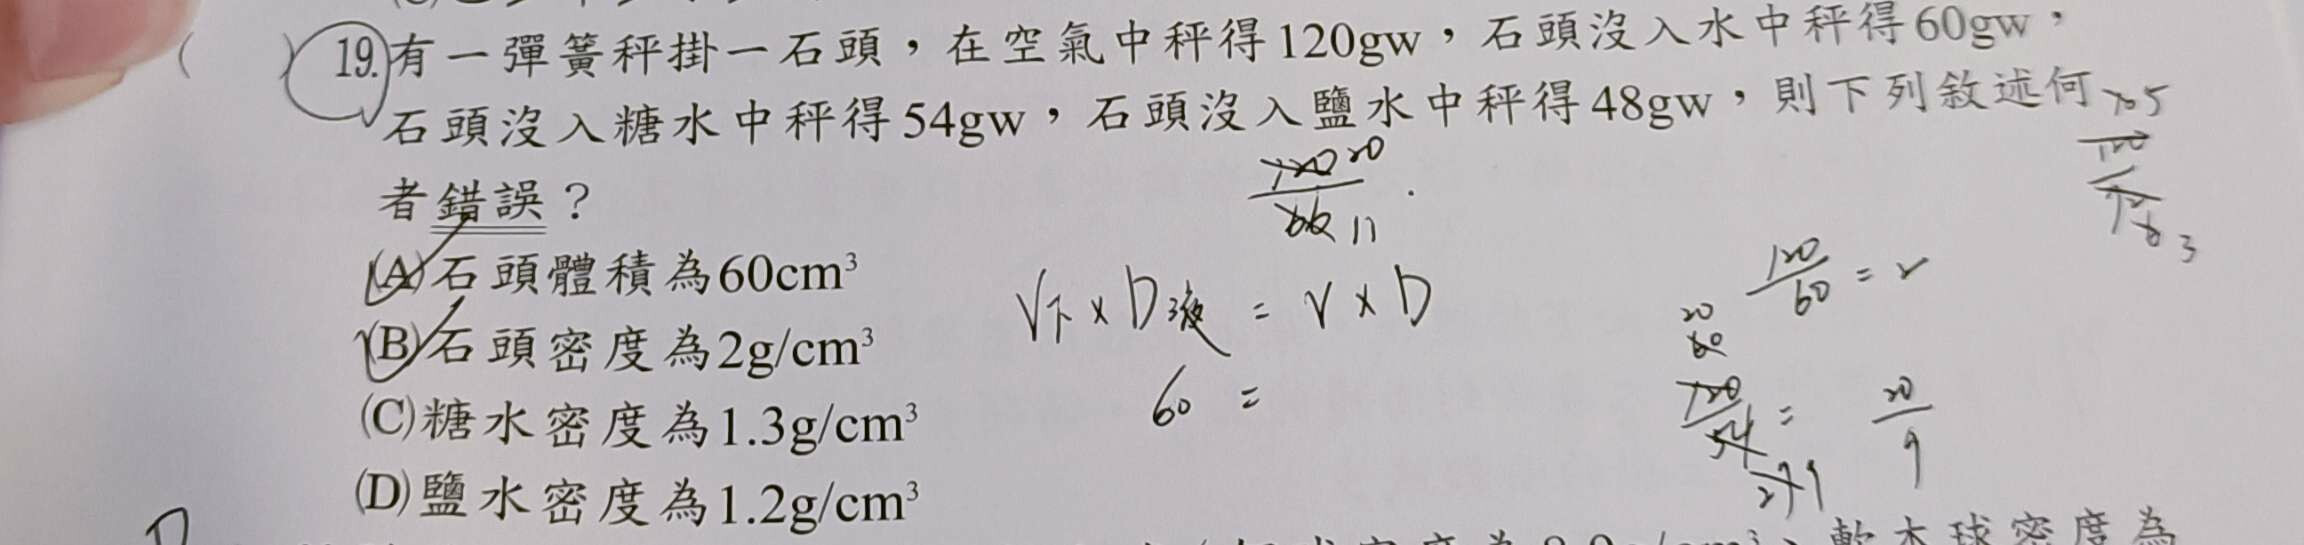 ( )19.有一彈簧秤掛一石頭，在空氣中秤得120gw，石頭沒入水中秤得60gw，
石頭沒入糖水中秤得54gw，石頭沒入鹽水中秤得48gw，則下列敘述何
者錯誤？
(A)石頭體積為60cm³
(B)石頭密度為2g/cm³
(C)糖水密度為1.3g/cm³
(D)鹽水密度為1.2g/cm³
V下×D液=V×D
60=
120/60=2
120/54=
20/9
120 20
66 11